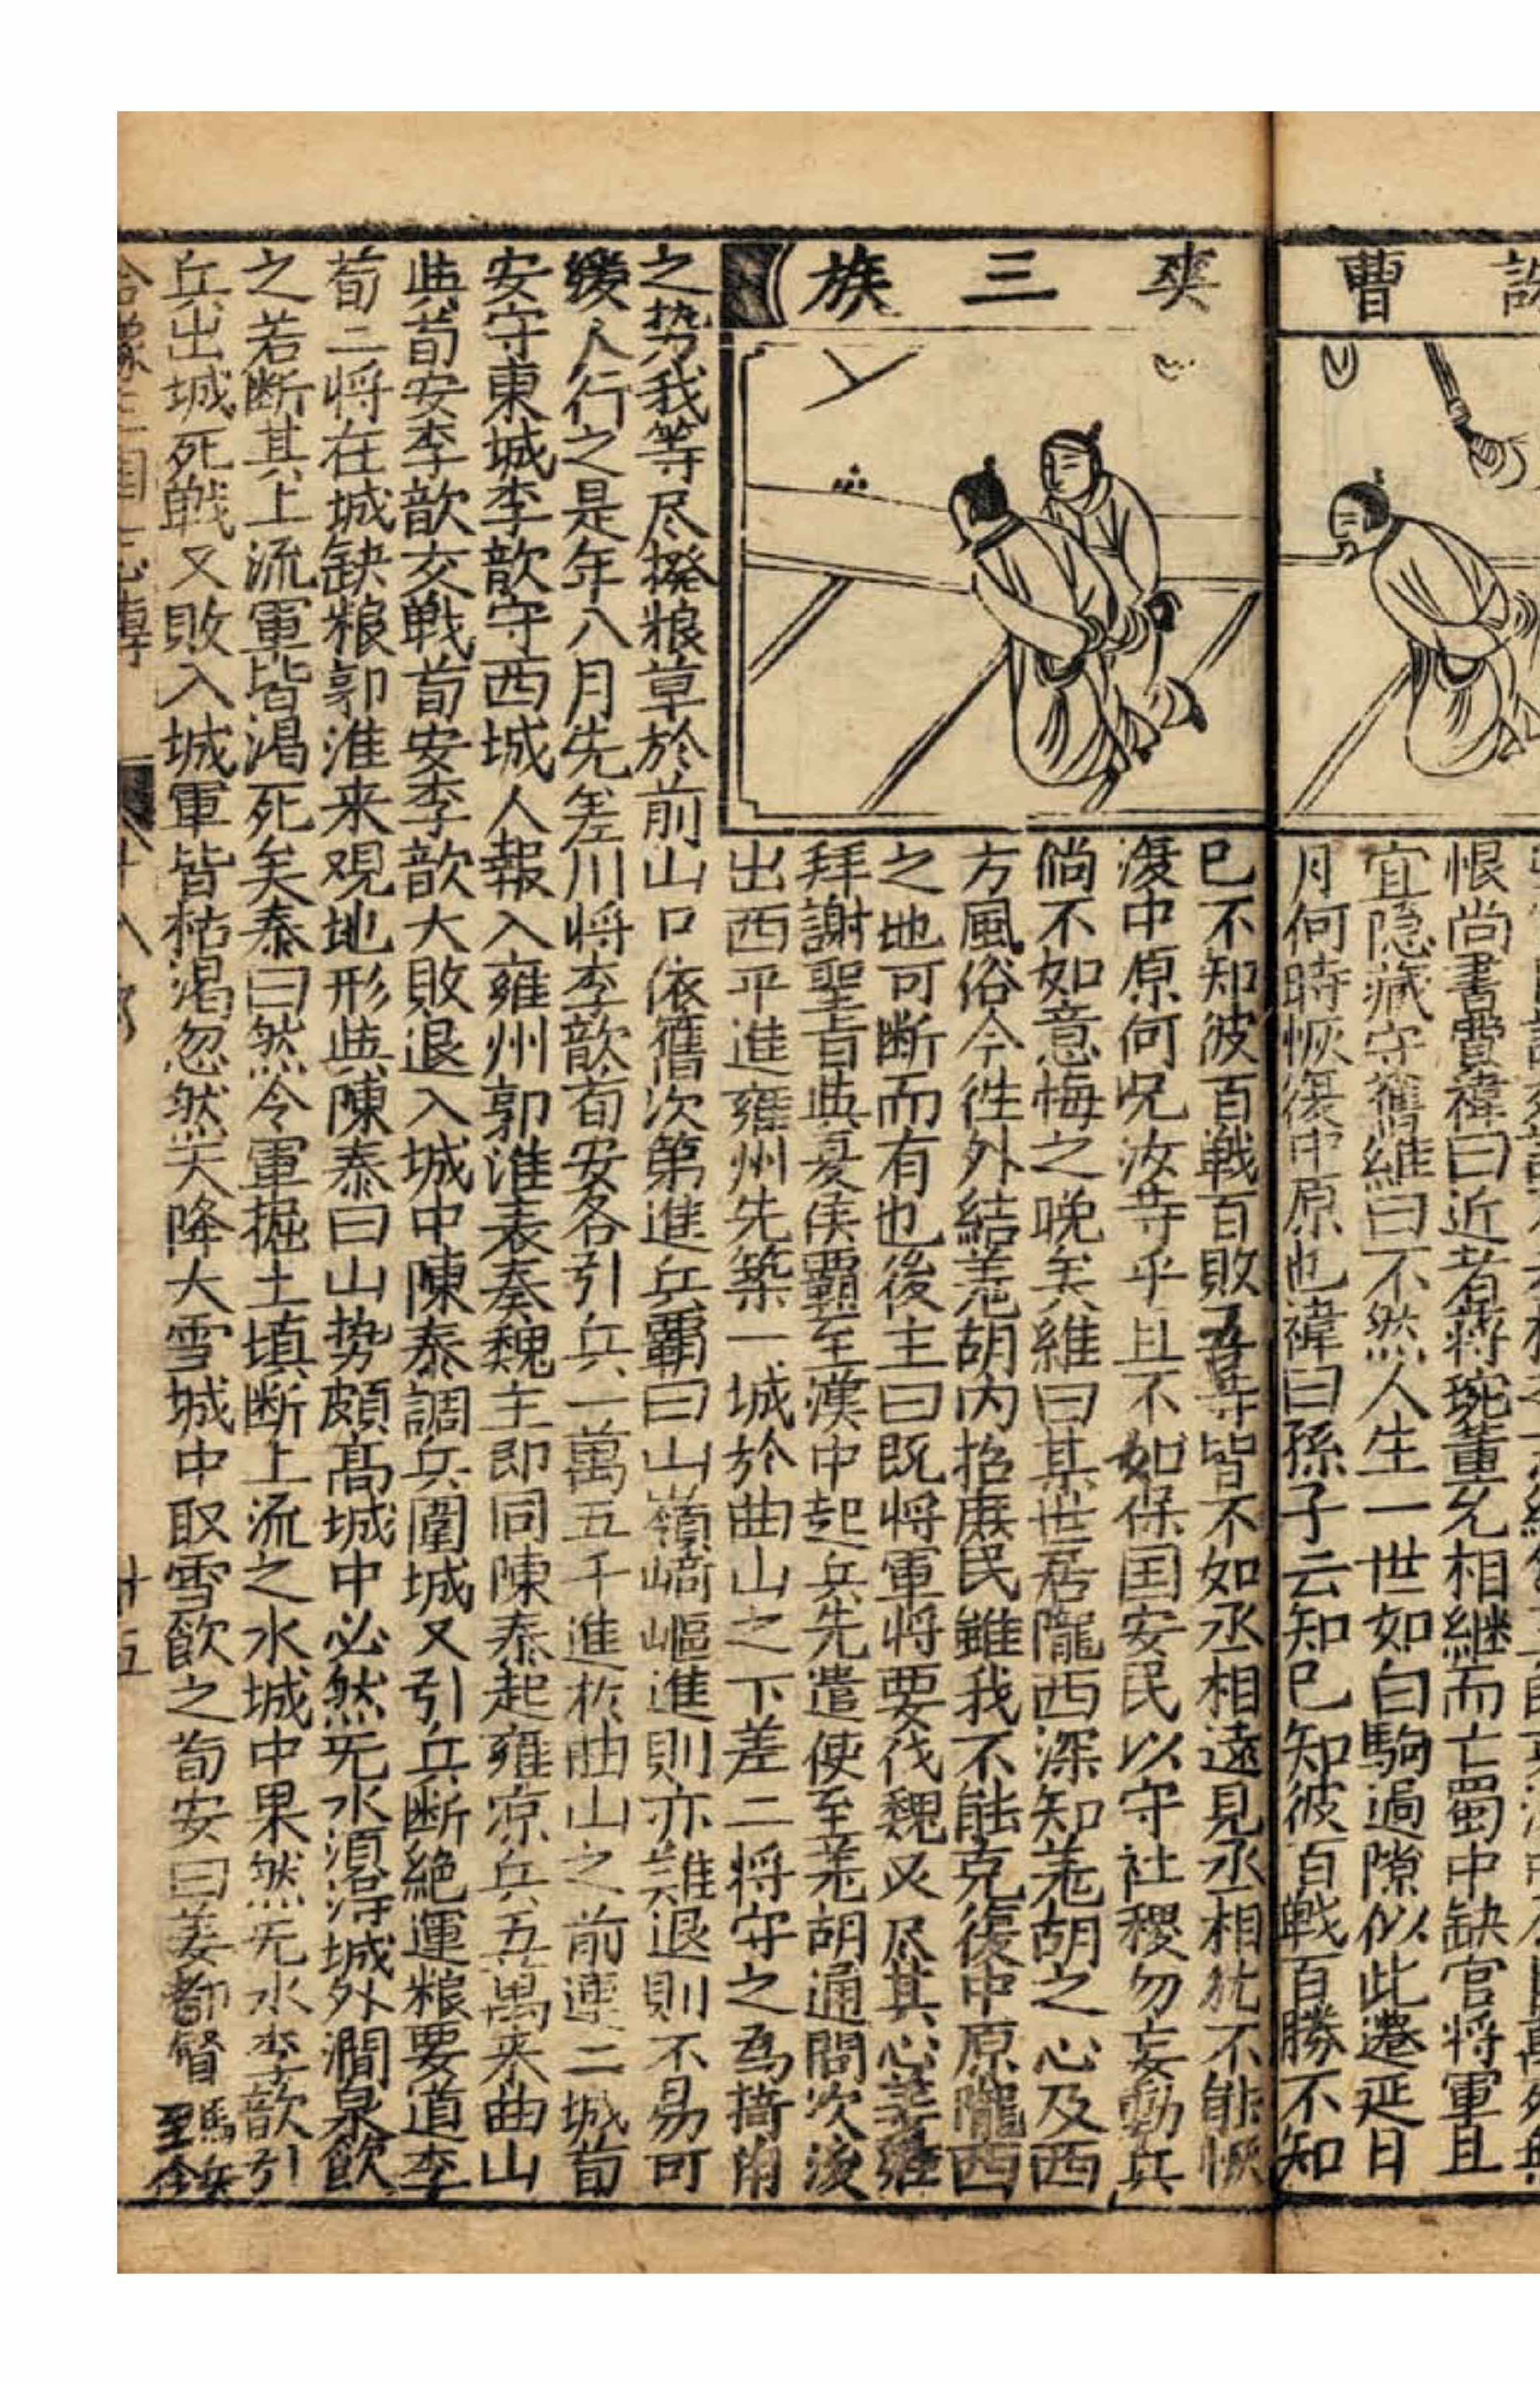 曹
恨尚書費禕曰近者蔣琬董允相継而亡蜀中缺官将軍且
宜隐藏守舊維曰不然人生一世如白駒過隙似此遷延日
月何時恢復中原也禕曰孫子云知已知彼百戰百勝不知
爽三族
已不知彼百戦百敗吾等皆不如丞相遠見丞相犹不能恢
復中原何况汝等乎且不如保国安民以守社稷勿妄動兵
倘不如意悔之晚矣維曰某世居隴西深知羌胡之心及西
方風俗今徃外結羌胡内招庶民雖我不能克復中原隴西
之地可断而有也後主曰既将軍将要伐魏必尽其心姜維
拜謝聖旨與夏侯霸至漢中起兵先遣使至羌胡通問次後
出西平進雍州先築一城於曲山之下差二将守之為掎角
之势我等尽撥粮草於前山口依舊次第進兵覇曰山嶺﨑嶇進則亦難退則不易可
緩人行之是年八月先差川将李歆荀安各引兵一萬五千進於曲山之前連二城荀
安守東城李歆守西城人報入雍州郭淮表奏魏主即同陳泰起雍凉兵五萬来曲山
與荀安李歆交戦荀安李歆大敗退入城中陳泰調兵圍城又引兵断絶運粮要道李
荀二将在城缺粮郭淮来观地形與陳泰曰山势頗高城中必然无水須得城外澗泉飲
之若断其上流軍皆渴死矣泰曰然令軍掘土填断上流之水城中果然无水李歆引
兵出城死戦又敗入城軍皆枯渴忽然天降大雪城中取雪飲之荀安曰姜都督馬兵至今
十八
廿五